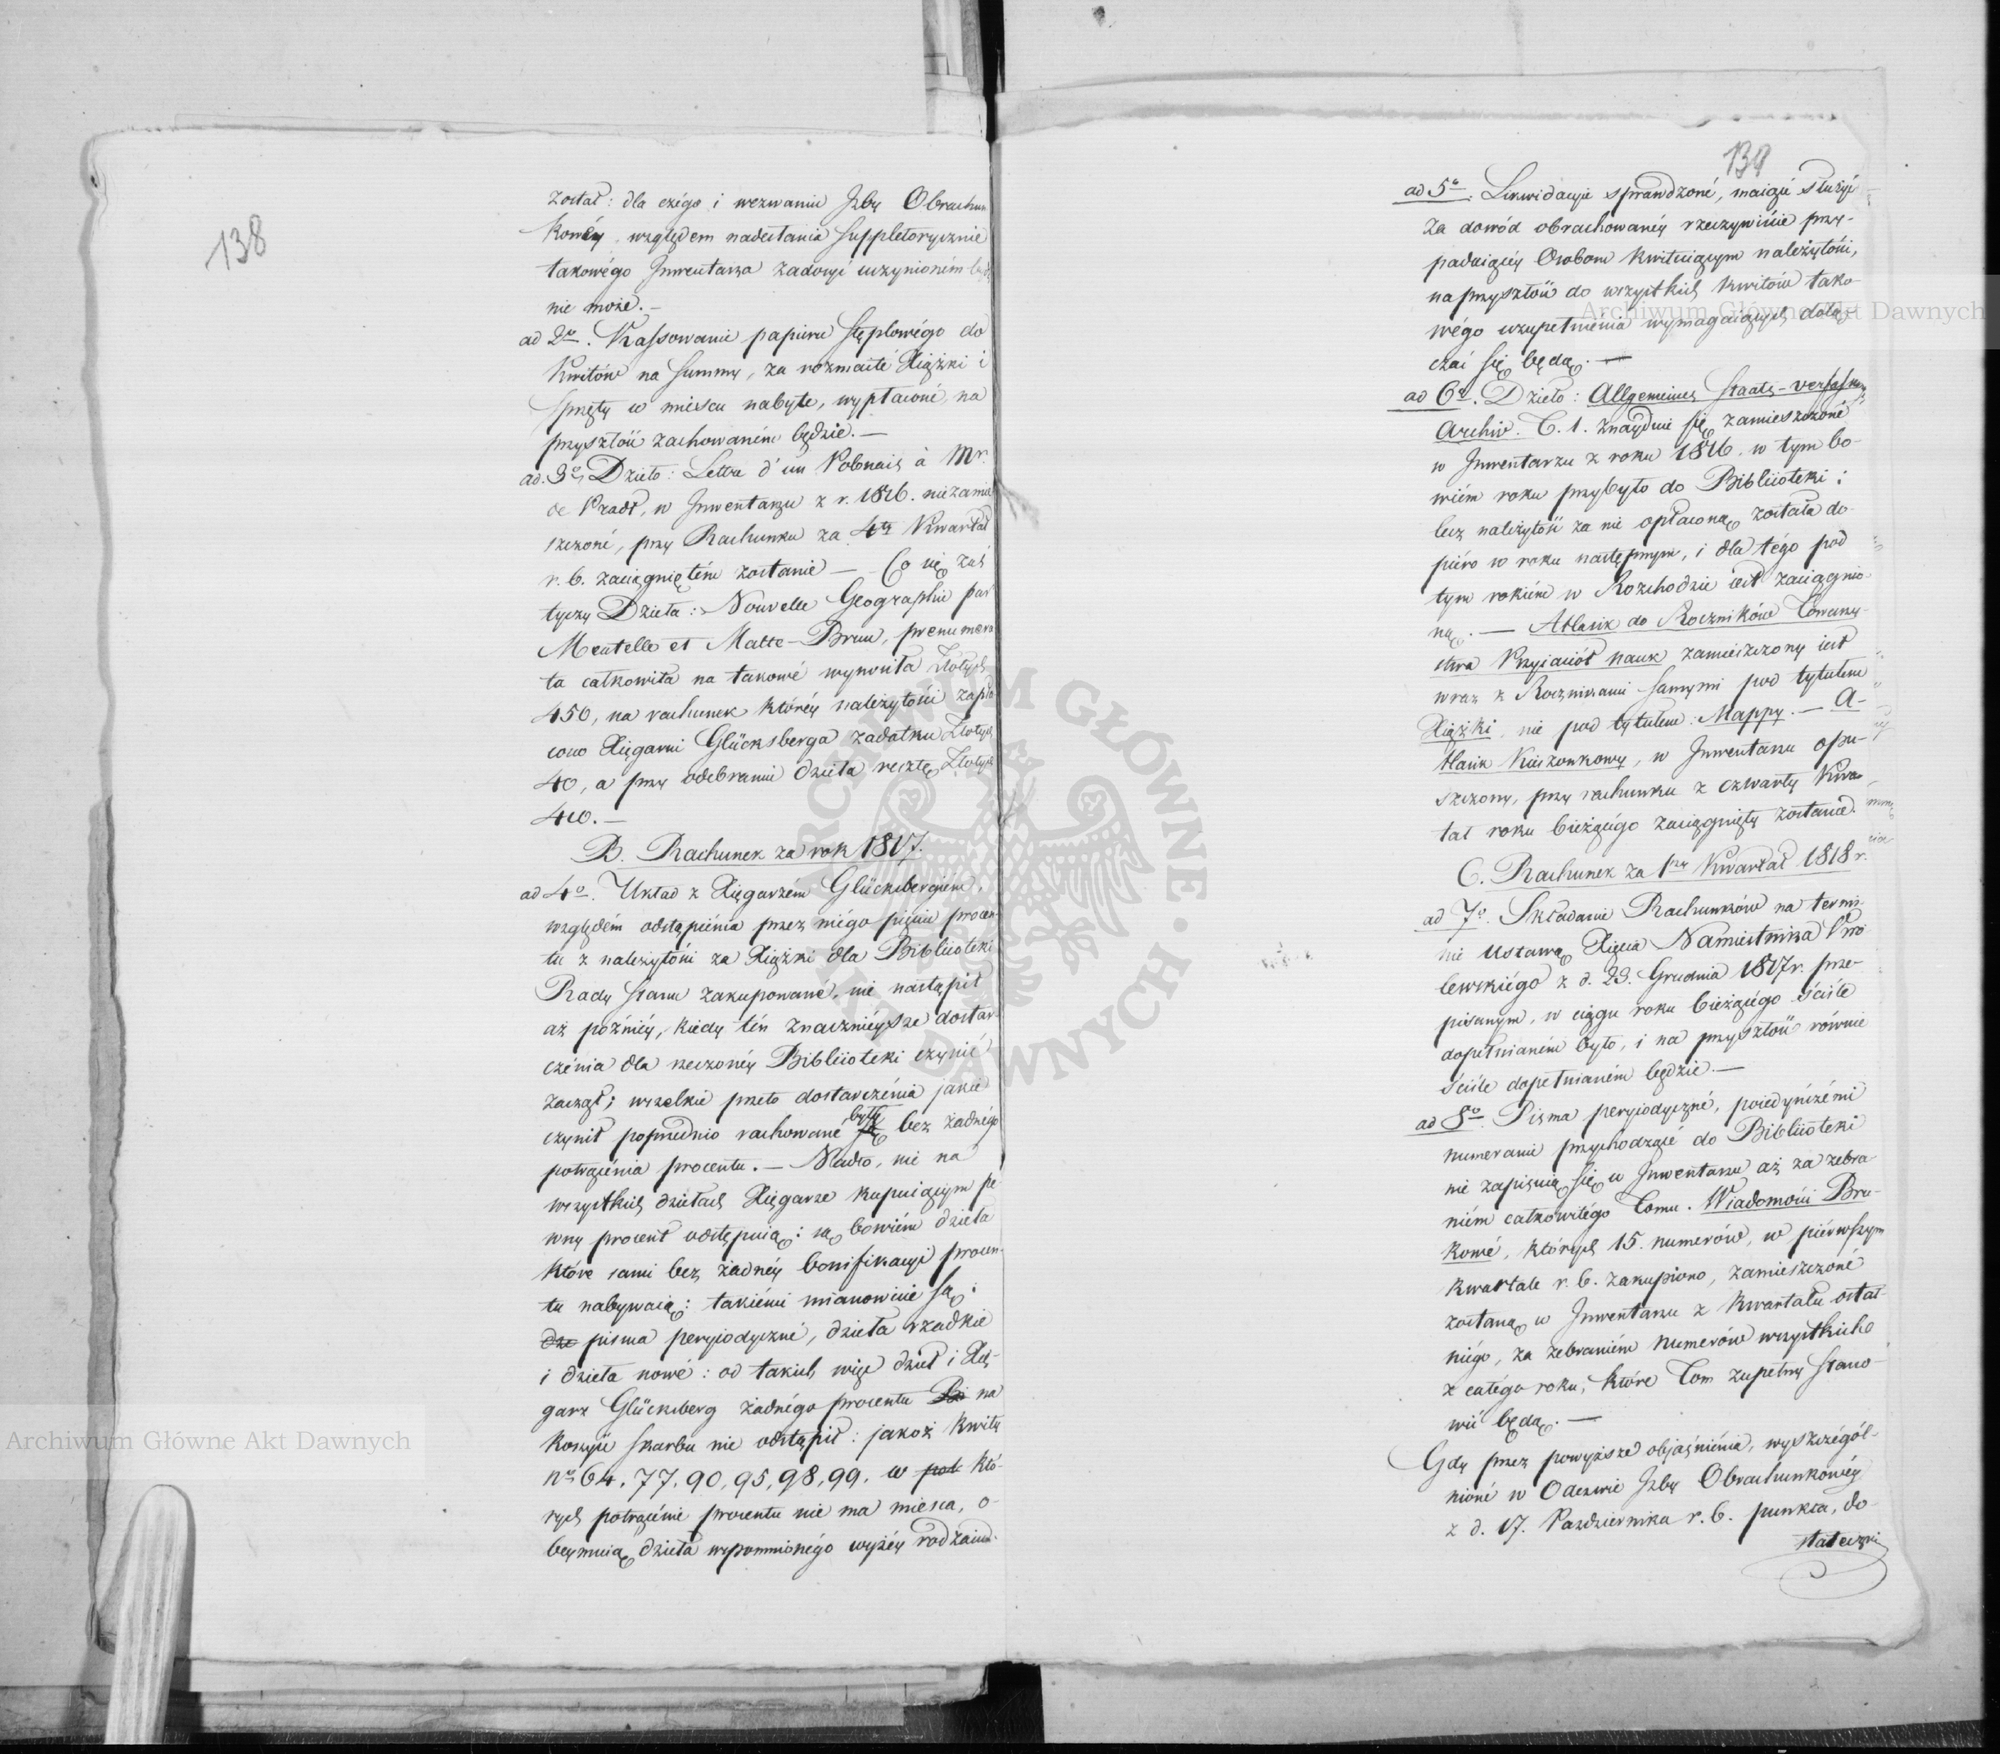 138
został: dla czégo i wezwaniu Jzby Obrachun
kowéy względem nadesłania suppletorycznie
takowégo Jnwentarza zadosyć uczynioném być
nie może. —
ad 2o. Kassowanie papieru stęplowégo do
kwitów na summy, za rozmaite Xiążki i
sprzęty w miescu nabyte, wypłacone, na
przyszłość zachowaném będzie. —
ad. 3o, Dzieło: Lettre d'un Polonais à Mr.
de Pradt, w Jnwentarzu z r. 1816. niezamie
szczoné, przy Rachunku za 4ty Kwartał
r. b. zaciągniętém zostanie — Co się zaś
tyczy Dzieła: Nouvelle Geographie par
Mentelle et Malte-Brun, prenumera
ta całkowita na takowé wynosiła Złotych
450, na rachunek któréy należytości zapła
cono Xięgarni Glücksberga zadatku Złotych
40, a przy odebraniu dzieła resztę Złotych
410. —
B. Rachunek za rok 1817.
ad 4o. Układ z Xięgarzém Glücksbergiem,
względém odstąpiénia przez niégo pięciu procen
tu z należytości za Xiążki dla Biblioteki
Rady Stanu zakupowané, nie nastąpił
aż poźniéy, kiedy tén znacznieysze dostar
czénia dla rzeczonéy Biblioteki czynić
zaczął; wszelkie przeto dostarczénia jakie
czynił poprzednio rachowané były bez żadnégo
potrącénia procentu. — Nadto, nie na
wszystkich dziełach Xięgarze kupuiącym pe
wny procent odstępuią: są bowiém dzieła
które sami bez żadnéy bonifikacyi procen
tu nabywaią: takiémi mianowicie są:
dze pisma peryiodyczné, dzieła rzadkie
i dzieła nowé: od takich więc dzieł i Xię-
garz Glücksberg żadnégo procentu na
korzyść skarbu nie odstąpił: jakoż kwity
no 64, 77, 90, 95, 98, 99. w któ-
rych potrącénie procentu nie ma miesca, o-
beymuią dzieła wspomnionégo wyżéy rodzaiu.
139
ad 5o. Likwidacyie sprawdzoné, maiącé służyć
za dowód obrachowanéy rzeczywiście przy-
padaiącéy Osobom kwituiącym należytości,
na przyszłość do wszystkich kwitów tako-
wégo uzupełnienia wymagaiących dołą-
czać się będą. —
ad 6o. Dzieło: Allgemeines Staats-verfassungs
Archiv. T. 1. znayduie się zamieszczoné
w Jnwentarzu z roku 1816. w tym bo-
wiém roku przybyło do Biblioteki;
lecz należytość za nie opłaconą została do-
piéro w roku następnym, i dla tégo pod
tym rokiém w Rozchodzie iest zaciągnio-
ną. — Atlasik do Roczników Towarzy-
stwa Przyiaciół nauk zamieszczony iest
wraz z Rocznikami samymi pod tytułem
Xiążki, nie pod tytułem: Mappy. — A-
tlasik Kieszonkowy, w Jnwentarzu opu-
szczony, przy rachunku z czwarty Kwar
tał roku bieżącégo zaciągnięty zostanie.
C. Rachunek za 1szy Kwartał 1818 r.
ad 7o. Składanie Rachunków na termi-
nie Ustawą Xięcia Namiestnika Kró
lewskiégo z d. 23. Grudnia 1817 r. prze-
pisanym, w ciągu roku bieżącégo ściśle
dopełnianém było, i na przyszłość równie
ściśle dopełnianém będzie. —
ad 8o. Pisma peryiodyczné, poiedyńczémi
numerami przychodzącé do Biblioteki
nie zapisuią się w Jnwentarzu aż za zebra-
niém całkowitégo Tomu. Wiadomości Bru-
kowé, których 15. numerów, w piérwszym
kwartale r. b. zakupiono, zamieszczoné
zostaną w Jnwentarzu z Kwartału ostat-
niégo, za zebraniém numerów wszystkich
z całégo roku, które Tom zupełny stano-
wić będą. —
Gdy przez powyższe objaśniénia, wyszczegól-
nioné w Odezwie Jzby Obrachunkowéy
z d. 17. Października r. b. punkta, do-
statecznie
Archiwum Główne Akt Dawnych
Archiwum Główne Akt Dawnych
ARCHIWUM GŁÓWNE · AKT DAWNYCH ·